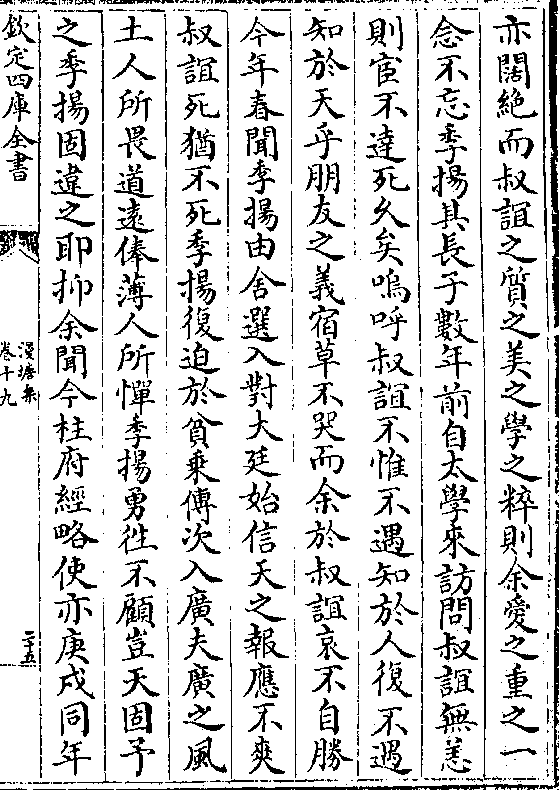 亦闊絶而叔誼之質之美之學之粹則余愛之重之一
念不忘季揚其長子數年前自太學來訪問叔誼無恙
則宦不達死久矣嗚呼叔誼不惟不遇知於人復不遇
知於天乎朋友之義宿草不哭而余於叔誼哀不自勝
今年春聞季揚由舍選入對大廷始信天之報應不爽
叔誼死猶不死季揚復迫於貧乗傳次入廣夫廣之風
土人所畏道逺俸薄人所憚季揚勇徃不顧豈天固予
之季揚固違之耶抑余聞今桂府經略使亦庚戌同年
欽定四庫全書
漫塘集
卷十九
二十五